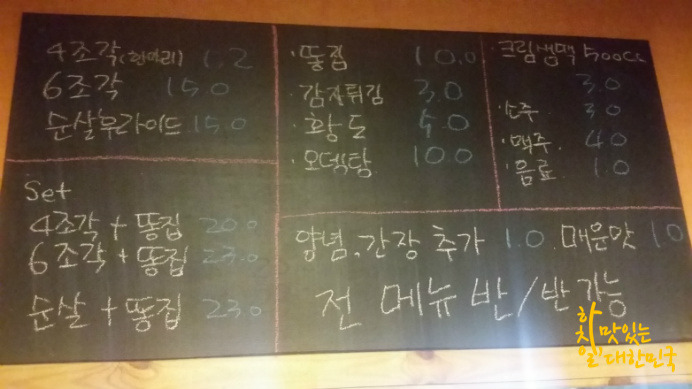 4조각(한마리) 1.2
6조각 15.0
순살후라이드 15.0
·똥집 10.0
·감자튀김 3.0
·황도 5.0
·오뎅탕 10.0
·크림생맥 500cc
3.0
·소주 3.0
·맥주. 4.0
·음료. 1.0
Set
4조각 + 똥집 20.0
6조각 + 똥집 23.0
순살 + 똥집 23.0
양념, 간장 추가 1.0. 매운맛 1.0
전 메뉴 반/반 가능
맛있는
대한민국